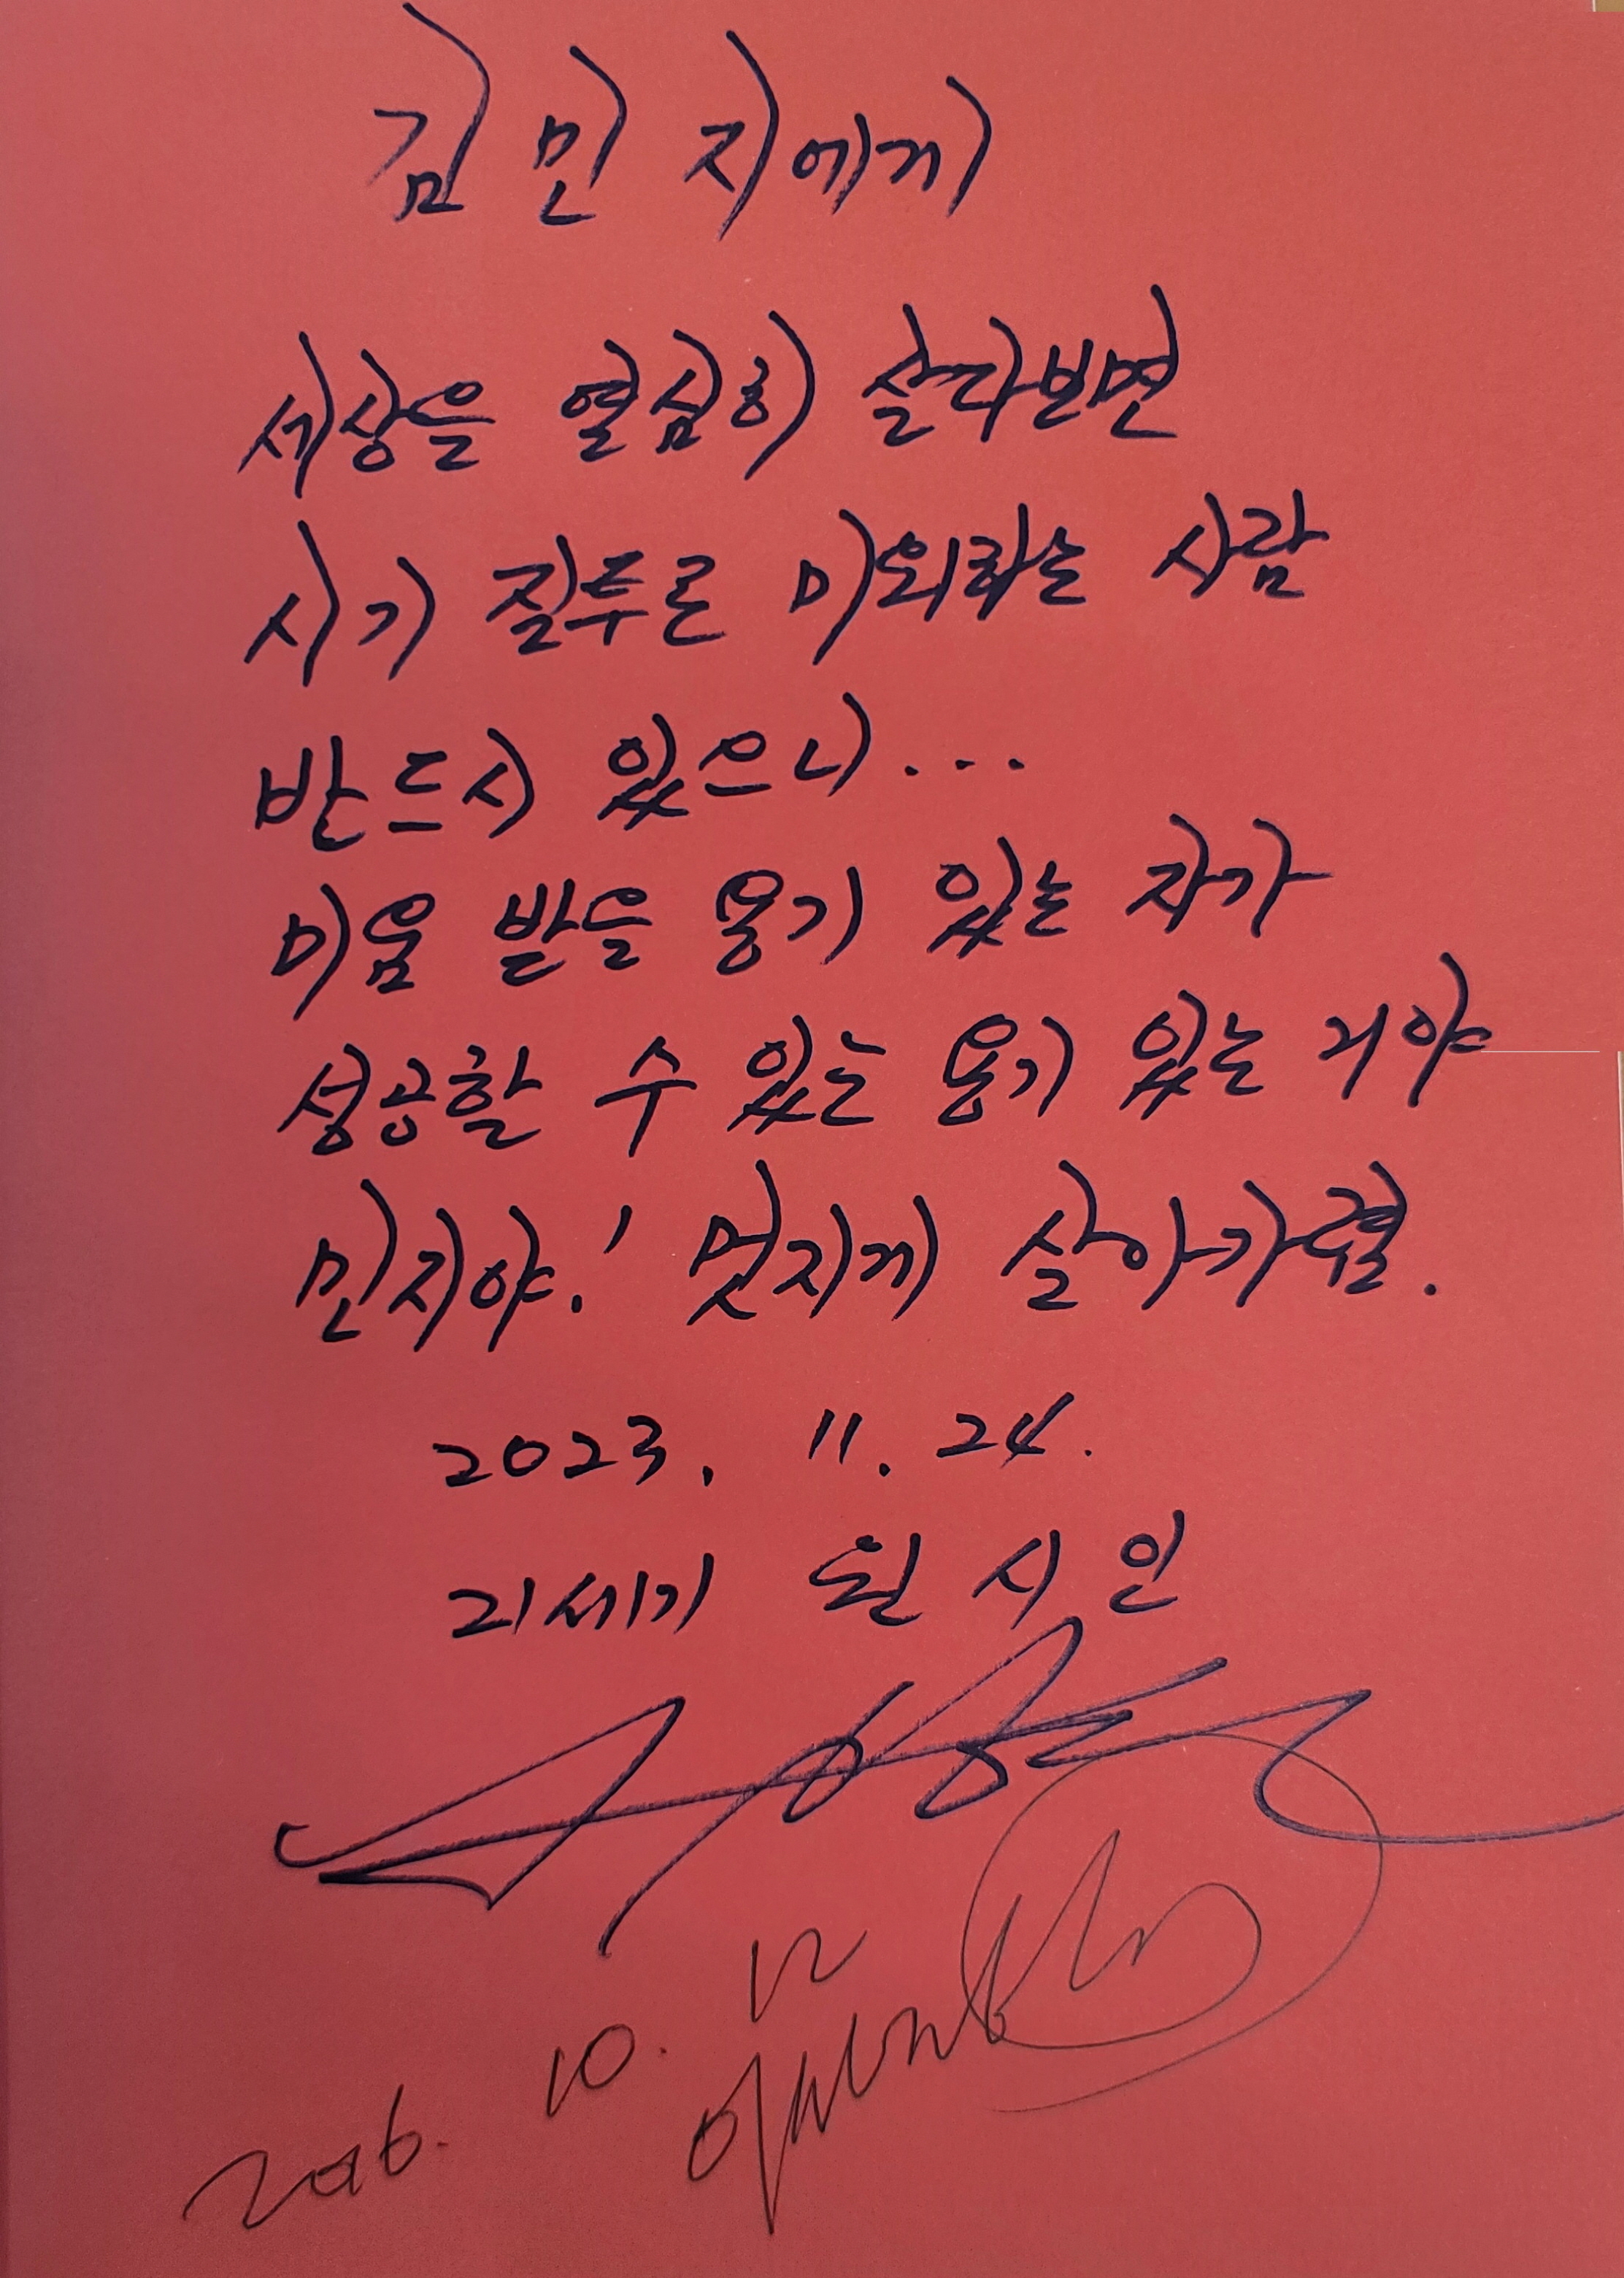 김민지에게
세상을 열심히 살다보면
시기 질투로 미워하는 사람
반드시 있으니...
미움 받을 용기 있는 자가
성공할 수 있는 용기 있는 거야
민지야! 멋지게 살아가렴.
2023. 11. 24.
21세기 원시인
10. 12